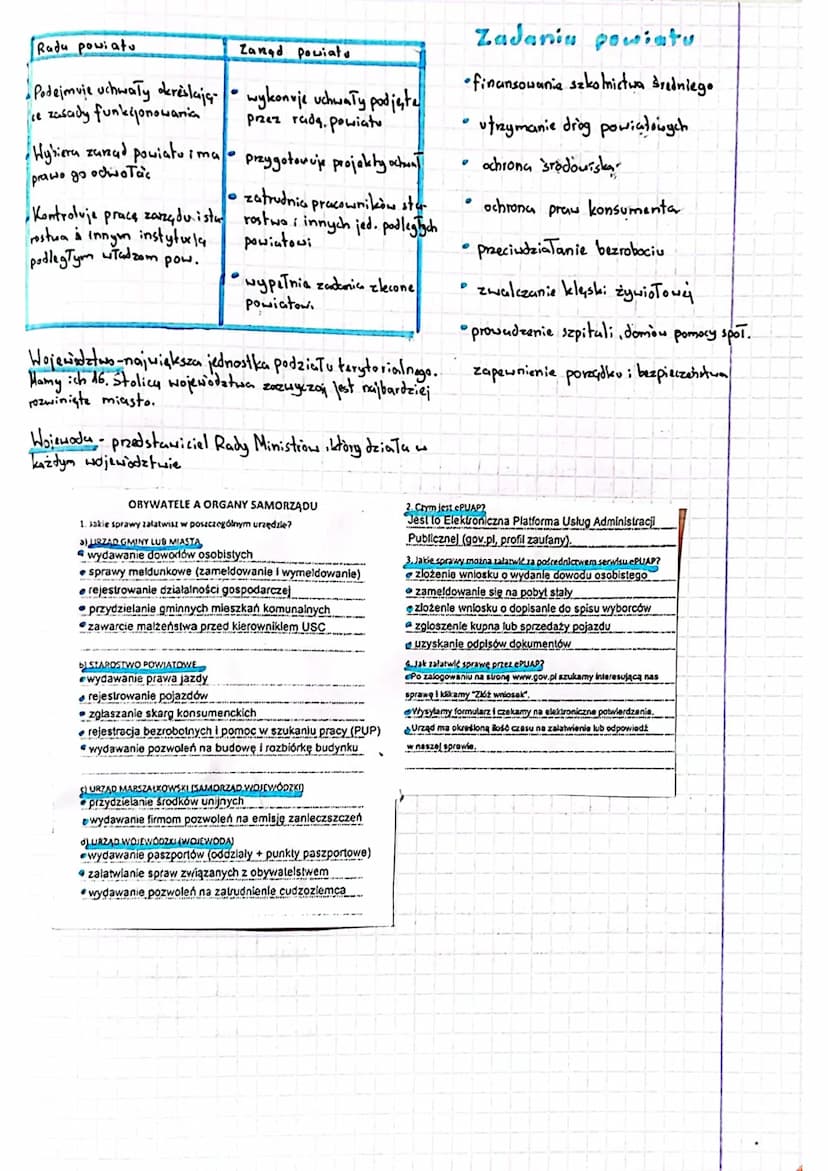 Rada powiatu
Podejmuje uchwały określają-
ce zasady funkcjonowania
Wybiera zarząd powiatu i ma
prawo go odwołać
Kontroluje pracę zarządu i sta
rostwa i innym instytucją
podległym władzom pow.
Zarząd powiatu
• wykonuje uchwały podjęte
przez radę powiatu
• przygotowuje projekty uchwał
• zatrudnia pracowników sta-
rostwa i innych jed. podległych
powiatowi
• wypełnia zadania zlecone
powiatowi
Zadania powiatu
• finansowania szkolnictwa średniego
• utrzymanie dróg powiatowych
• ochrona środowiska
• ochrona praw konsumenta
• przeciwdziałanie bezrobociu
• zwalczanie klęski żywiołowej
• prowadzenie szpitali, domów pomocy społ.
zapewnienie porządku i bezpieczeństwa
Województwo - największa jednostka podziału terytorialnego.
Mamy ich 16. Stolicą województwa zazwyczaj jest najbardziej
rozwinięte miasto.
Wojewoda - przedstawiciel Rady Ministrów, który działa w
każdym województwie
OBYWATELE A ORGANY SAMORZĄDU
1. Jakie sprawy załatwisz w poszczególnym urzędzie?
a) URZĄD GMINY LUB MIASTA
• wydawanie dowodów osobistych
• sprawy meldunkowe (zameldowanie i wymeldowanie)
• rejestrowanie działalności gospodarczej
• przydzielanie gminnych mieszkań komunalnych
• zawarcie małżeństwa przed kierownikiem USC
b) STAROSTWO POWIATOWE
• wydawanie prawa jazdy
• rejestrowanie pojazdów
• zgłaszanie skarg konsumenckich
• rejestracja bezrobotnych i pomoc w szukaniu pracy (PUP)
• wydawanie pozwoleń na budowę i rozbiórkę budynku
c) URZĄD MARSZAŁKOWSKI (SAMORZĄD WOJEWÓDZKI)
• przydzielanie środków unijnych
• wydawanie firmom pozwoleń na emisję zanieczszczeń
d) URZĄD WOJEWÓDZKI (WOJEWODA)
• wydawanie paszportów (oddziały + punkty paszportowe)
• załatwianie spraw związanych z obywatelstwem
• wydawanie pozwoleń na zatrudnienie cudzoziemca
2. Czym jest ePUAP?
Jest to Elektroniczna Platforma Usług Administracji
Publicznej (gov.pl, profil zaufany).
3. Jakie sprawy można załatwić za pośrednictwem serwisu ePUAP?
• złożenie wniosku o wydanie dowodu osobistego
• zameldowanie się na pobyt stały
• złożenie wniosku o dopisanie do spisu wyborców
• zgłoszenie kupna lub sprzedaży pojazdu
• uzyskanie odpisów dokumentów
4. Jak załatwić sprawę przez ePUAP?
• Po zalogowaniu na stronę www.gov.pl szukamy interesującą nas
sprawę i klikamy "Złóż wniosek".
• Wysyłamy formularz i czekamy na elektroniczne potwierdzenie.
• Urząd ma określoną ilość czasu na załatwienie lub odpowiedź
w naszej sprawie.